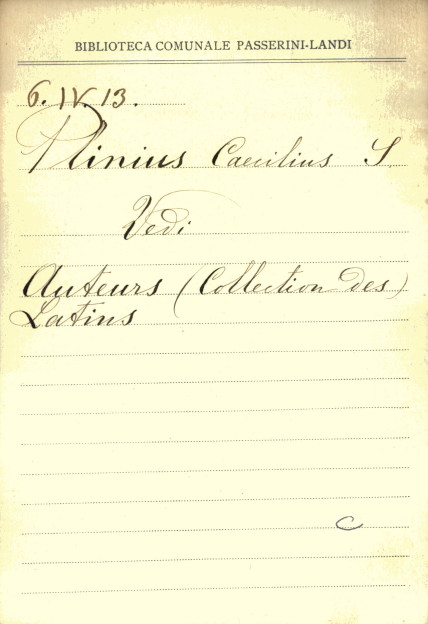 BIBLIOTECA COMUNALE PASSERINI-LANDI
6. IV. 13.
Plinius Caecilius S
Vedi
Auteurs (Collection des)
Latins
C